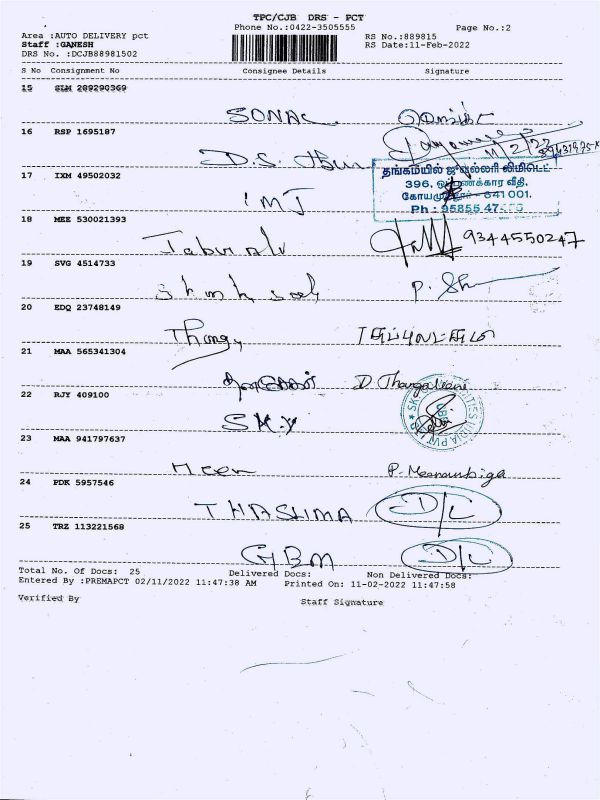 TPC/CJB DRS - PCT
Phone No.:0422-3505555 Page No.:2
Area :AUTO DELIVERY pct RS No.:889815
Staff :GANESH RS Date:11-Feb-2022
DRS No. :DCJB88981502
S No Consignment No Consignee Details Signature
15 SLM 289290369
SONAL
16 RSP 1695187
D.S.
11/2/22
17 IXM 49502032
தங்கமயில் ஜுவல்லரி லிமிடெட்
396, ஒப்பணக்கார வீதி,
கோயமுத்தூர் - 641 001.
Ph : 95855 47
IMJ
18 MEE 530021393
9344550247
19 SVG 4514733
P. Sh
20 EDQ 23748149
Thangy
21 MAA 565341304
D. Thangamani
22 RJY 409100
SKY
23 MAA 941797637
Meen P. Meenambiga
24 PDK 5957546
THASLIMA D/C
25 TRZ 113221568
GBM D/C
Total No. Of Docs: 25 Delivered Docs: Non Delivered Docs:
Entered By :PREMAPCT 02/11/2022 11:47:38 AM Printed On: 11-02-2022 11:47:58
Verified By Staff Signature